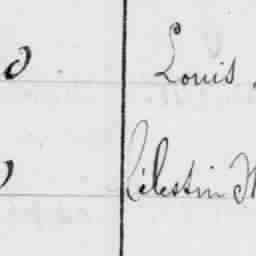 Louis
Célestin